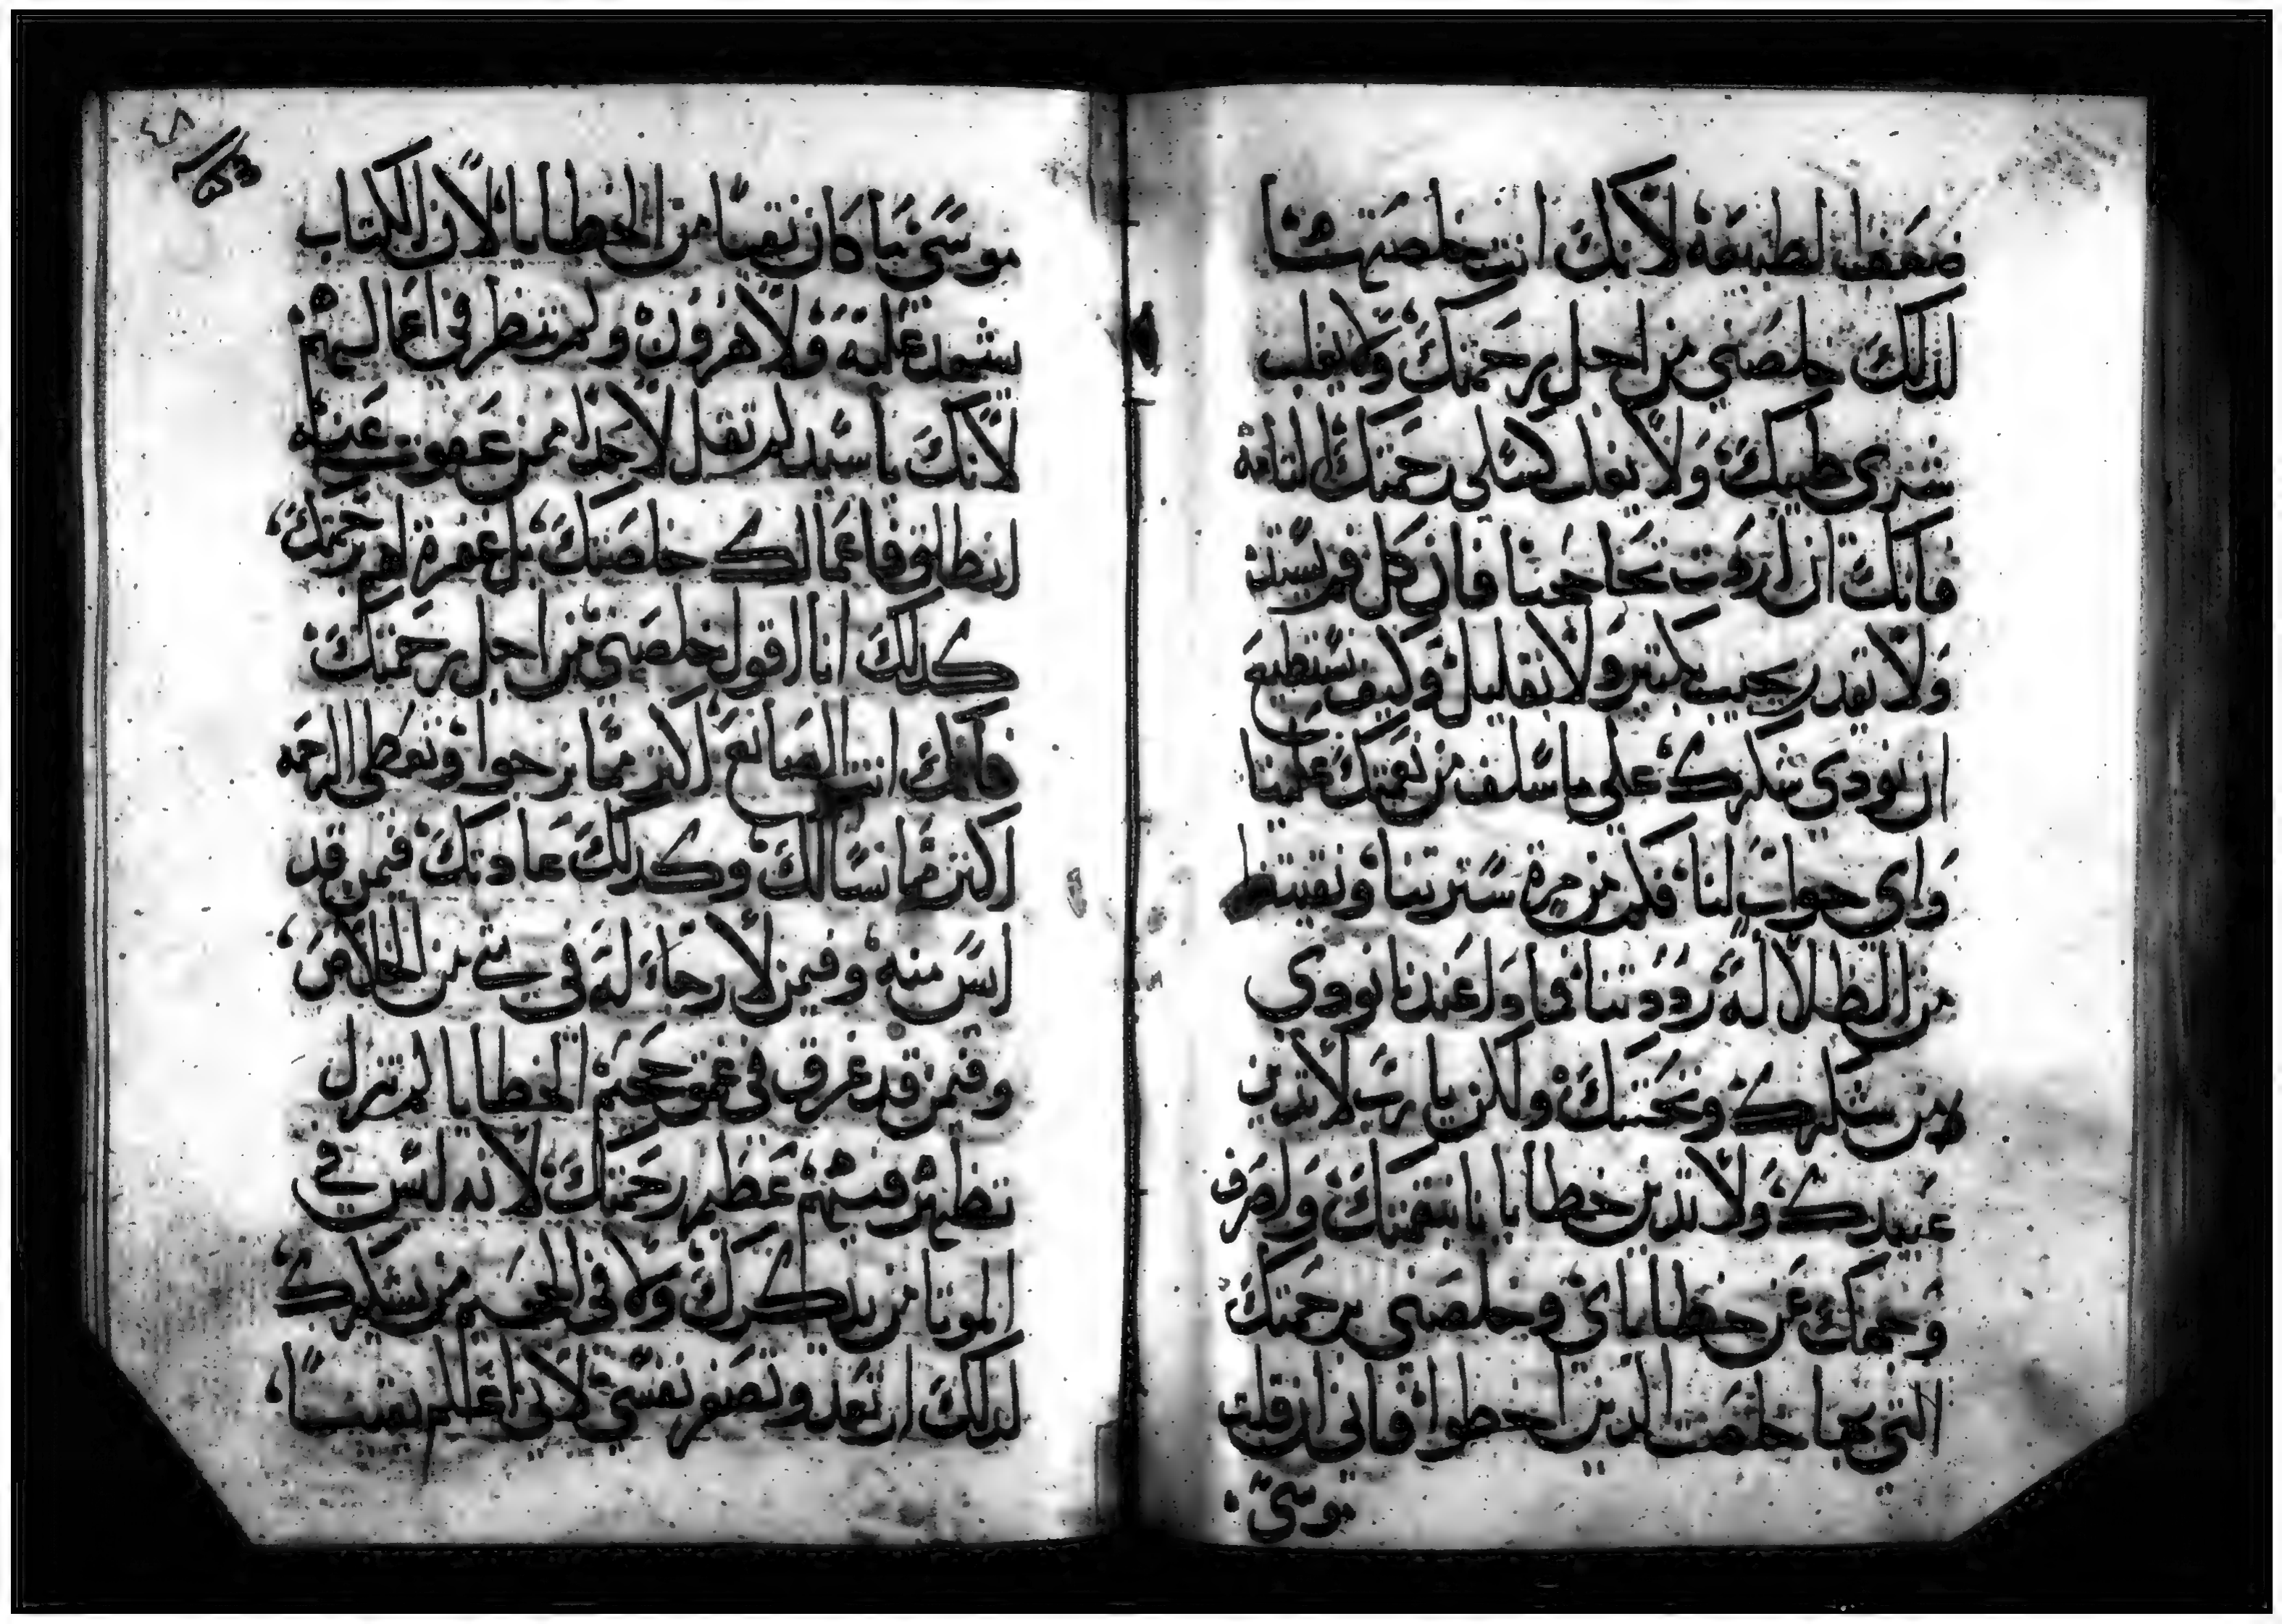 ضعفنا لطبيعة لانك انت خلصتهمنا
لذلك خلصني من اجل رحمتك ولا يغلب
شري طيبك ولا يغلب كسلي رحمتك التامة
فانك ان اردت تحاججنا فان كل فم يستد
ولا تقدر تجيب بكتير ولا تقليل وكيف نستطيع
ان نودي شكرك على ما سلف من نعمتك علينا
واي جواب لنا فكم من مرة سترتنا ونقيتنا
من الظلالة رددتنا فما دا عندنا نودي
من شكرك ومحبتك ولكن يا رب لا تدين
عبيدك ولا تدين خطايانا بنقمتك واصرف
وجهك عن خطاياي وخلصني برحمتك
التي بها خلصت الدين اخطوا فاني ان قلت
موسى
موسى ما كان نقيا من الخطايا لان الكتاب
يشهد عليه ولا هرون ولم تنظر في اعمالهم
لانك يا سيد لم تقل لاحد ممن عفوت عنه
انطلق فاعمالك خلصتك بل غفرة لهم برحمتك
كذلك انا اقول خلصني من اجل رحمتك
فانك انت الصانع اكتر مما نرجوا وتعطي الرحمه
اكتر مما نسالك وكذلك عادتك فيمن قد
ايس منه وفيمن لا رجاء له في شي من الخلاص
وفيمن قد غرق في عمق جحيم الخطايا لم تزل
تظهر فيهم عظم رحمتك لانه ليس في
الموتا من يدكرك ولا في الجحيم من يشكرك
لذلك ان تعد وتصبر نفسي لاني اعلم يقينا